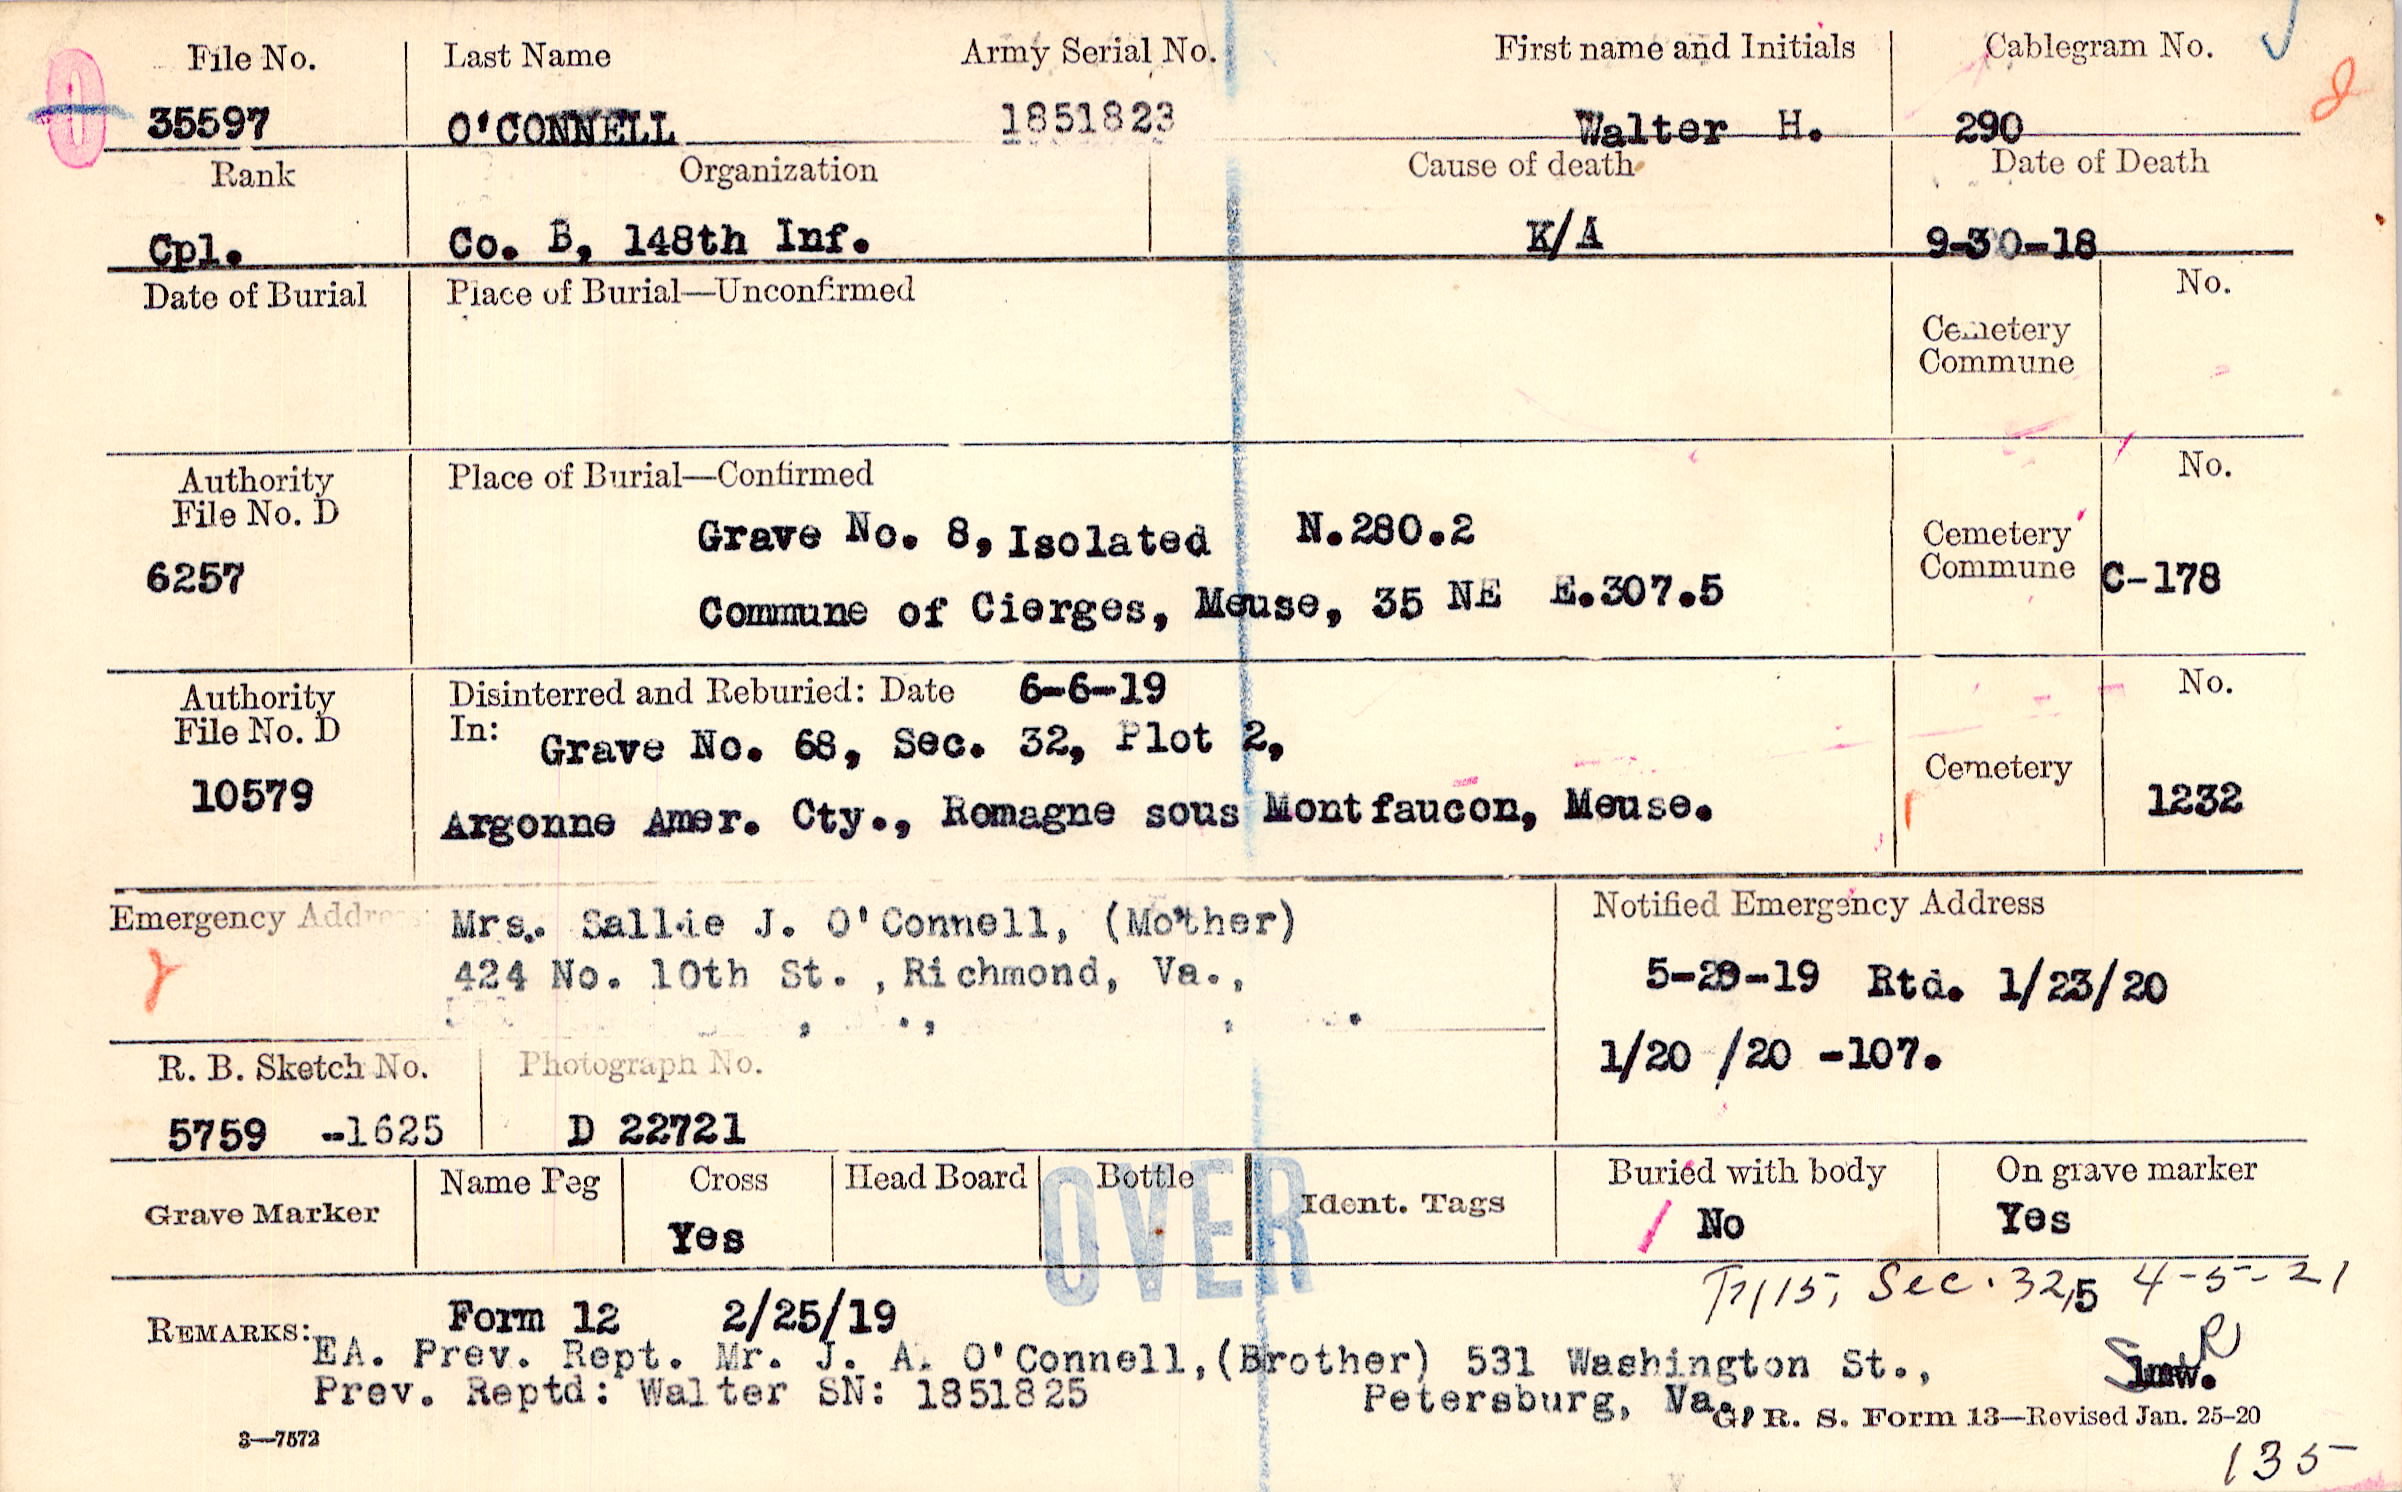 File No. Last Name Army Serial No. First name and Initials Cablegram No.
35597 O'CONNELL 1851823 Walter H. 290
Rank Organization Cause of death Date of Death
Cpl. Co. B, 148th Inf. K/A 9-30-18
Date of Burial Place of Burial—Unconfirmed No.
Cemetery
Commune
Authority Place of Burial—Confirmed No.
File No. D
6257
Grave No. 8, Isolated N.280.2
Commune of Cierges, Meuse, 35 NE E.307.5
Cemetery
Commune C-178
Authority Disinterred and Reburied: Date 6-6-19 No.
File No. D In: Grave No. 68, Sec. 32, Plot 2,
10579 Argonne Amer. Cty., Romagne sous Montfaucon, Meuse. Cemetery 1232
Emergency Address Mrs. Sallie J. O'Connell, (Mother)
424 No. 10th St., Richmond, Va.,
Notified Emergency Address
5-29-19 Rtd. 1/23/20
1/20 /20 -107.
R. B. Sketch No. Photograph No.
5759 -1625 D 22721
Grave Marker Name Peg Cross Head Board Bottle Ident. Tags Buried with body On grave marker
Yes No Yes
OVER
Sec. 32, 5 4-5-21
REMARKS: Form 12 2/25/19
EA. Prev. Rept. Mr. J. A. O'Connell, (Brother) 531 Washington St.,
Prev. Reptd: Walter SN: 1851825 Petersburg, Va.,
G. R. S. Form 13—Revised Jan. 25-20
3—7572
135